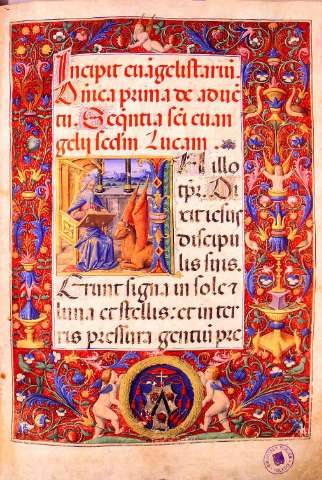 Incipit euãgelistariũ.
Dñica prima de aduẽ
tu. Seqẽntia sc̃i euan
gelij scdm Lucam.
In illo
tp̃r. Di
xit iesus
discipu
lis suis.
Erunt signa in sole et
luna et stellis: et in ter
ris pressura gentiũ pre